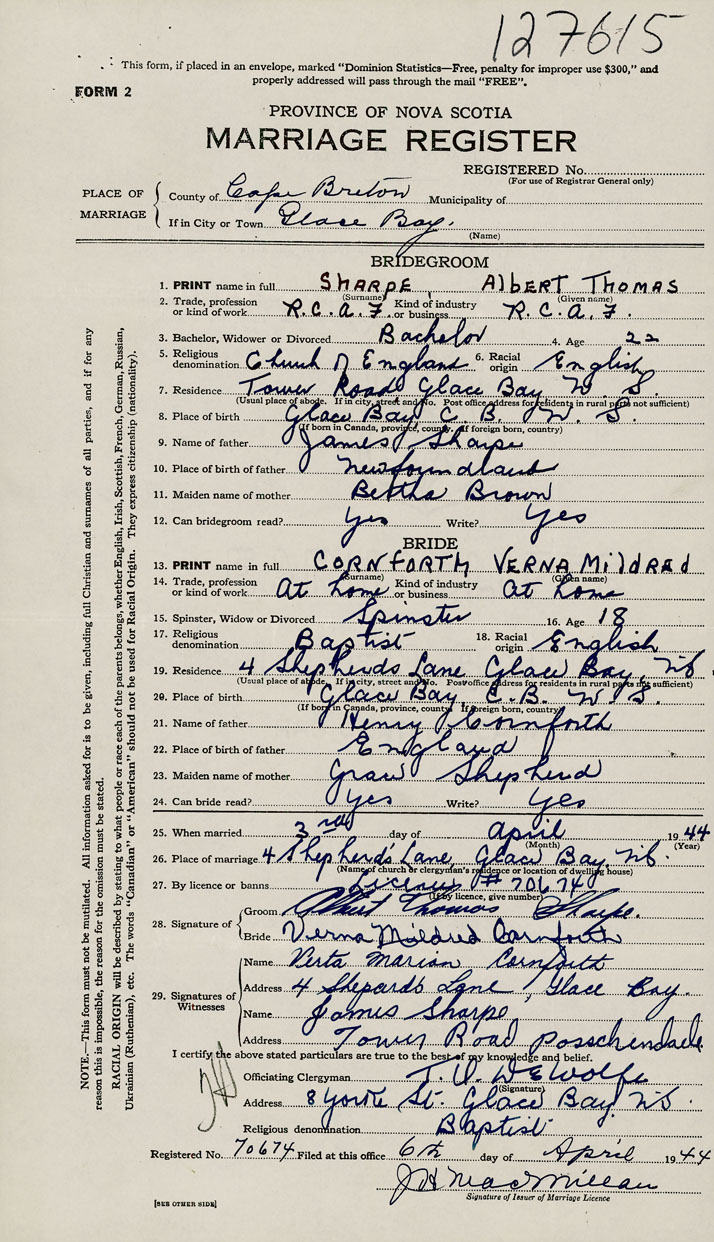 127615
This form, if placed in an envelope, marked "Dominion Statistics—Free, penalty for improper use $300," and
properly addressed will pass through the mail "FREE".
FORM 2
PROVINCE OF NOVA SCOTIA
MARRIAGE REGISTER
REGISTERED No.
(For use of Registrar General only)
PLACE OF MARRIAGE
County of Cape Breton Municipality of
If in City or Town Glace Bay.
(Name)
BRIDEGROOM
1. PRINT name in full SHARPE Albert Thomas
(Surname) (Given name)
2. Trade, profession or kind of work R.C.A.F. Kind of industry or business R.C.A.F.
3. Bachelor, Widower or Divorced Bachelor 4. Age 22
5. Religious denomination Church of England 6. Racial origin English
7. Residence Tower Road Glace Bay N. S.
(Usual place of abode. If in city, street and No. Post office address for residents in rural parts not sufficient)
8. Place of birth Glace Bay C. B. N. S.
(If born in Canada, province, county. If foreign born, country)
9. Name of father James Sharpe
10. Place of birth of father Newfoundland
11. Maiden name of mother Bertha Brown
12. Can bridegroom read? yes Write? yes
BRIDE
13. PRINT name in full CORNFORTH VERNA MildRed
(Surname) (Given name)
14. Trade, profession or kind of work At home Kind of industry or business at home
15. Spinster, Widow or Divorced Spinster 16. Age 18
17. Religious denomination Baptist 18. Racial origin English
19. Residence 4 Shepherds Lane Glace Bay, NS
(Usual place of abode. If in city, street and No. Post office address for residents in rural parts not sufficient)
20. Place of birth Glace Bay C.B. N. S.
(If born in Canada, province, county. If foreign born, country)
21. Name of father Henry Cornforth
22. Place of birth of father England
23. Maiden name of mother Shepherd
24. Can bride read? yes Write? yes
25. When married 3rd day of April 1944
(Month) (Year)
26. Place of marriage 4 Shepherd's Lane, Glace Bay, NS.
(Name of church or clergyman's residence or location of dwelling house)
27. By licence or banns License # 70674
(If by licence, give number)
28. Signature of
Groom Albert Thomas Sharpe.
Bride Verna Mildred Cornforth
29. Signatures of Witnesses
Name Marion Cornforth
Address 4 Shepards Lane, Glace Bay.
Name James Sharpe
Address Tower Road Passchendaele
I certify the above stated particulars are true to the best of my knowledge and belief.
Officiating Clergyman T. W. DeWolfe
(Signature)
Address 8 York St. Glace Bay NS.
Religious denomination Baptist
Registered No. 70674 Filed at this office 6th day of April 1944
JH MacMillan
Signature of Issuer of Marriage Licence
[SEE OTHER SIDE]
NOTE.—This form must not be mutilated. All information asked for is to be given, including full Christian and surnames of all parties, and if for any
reason this is impossible, the reason for the omission must be stated.
RACIAL ORIGIN will be described by stating to what people or race each of the parents belongs, whether English, Irish, Scottish, French, German, Russian,
Ukrainian (Ruthenian), etc. The words "Canadian" or "American" should not be used for Racial Origin. They express citizenship (nationality).